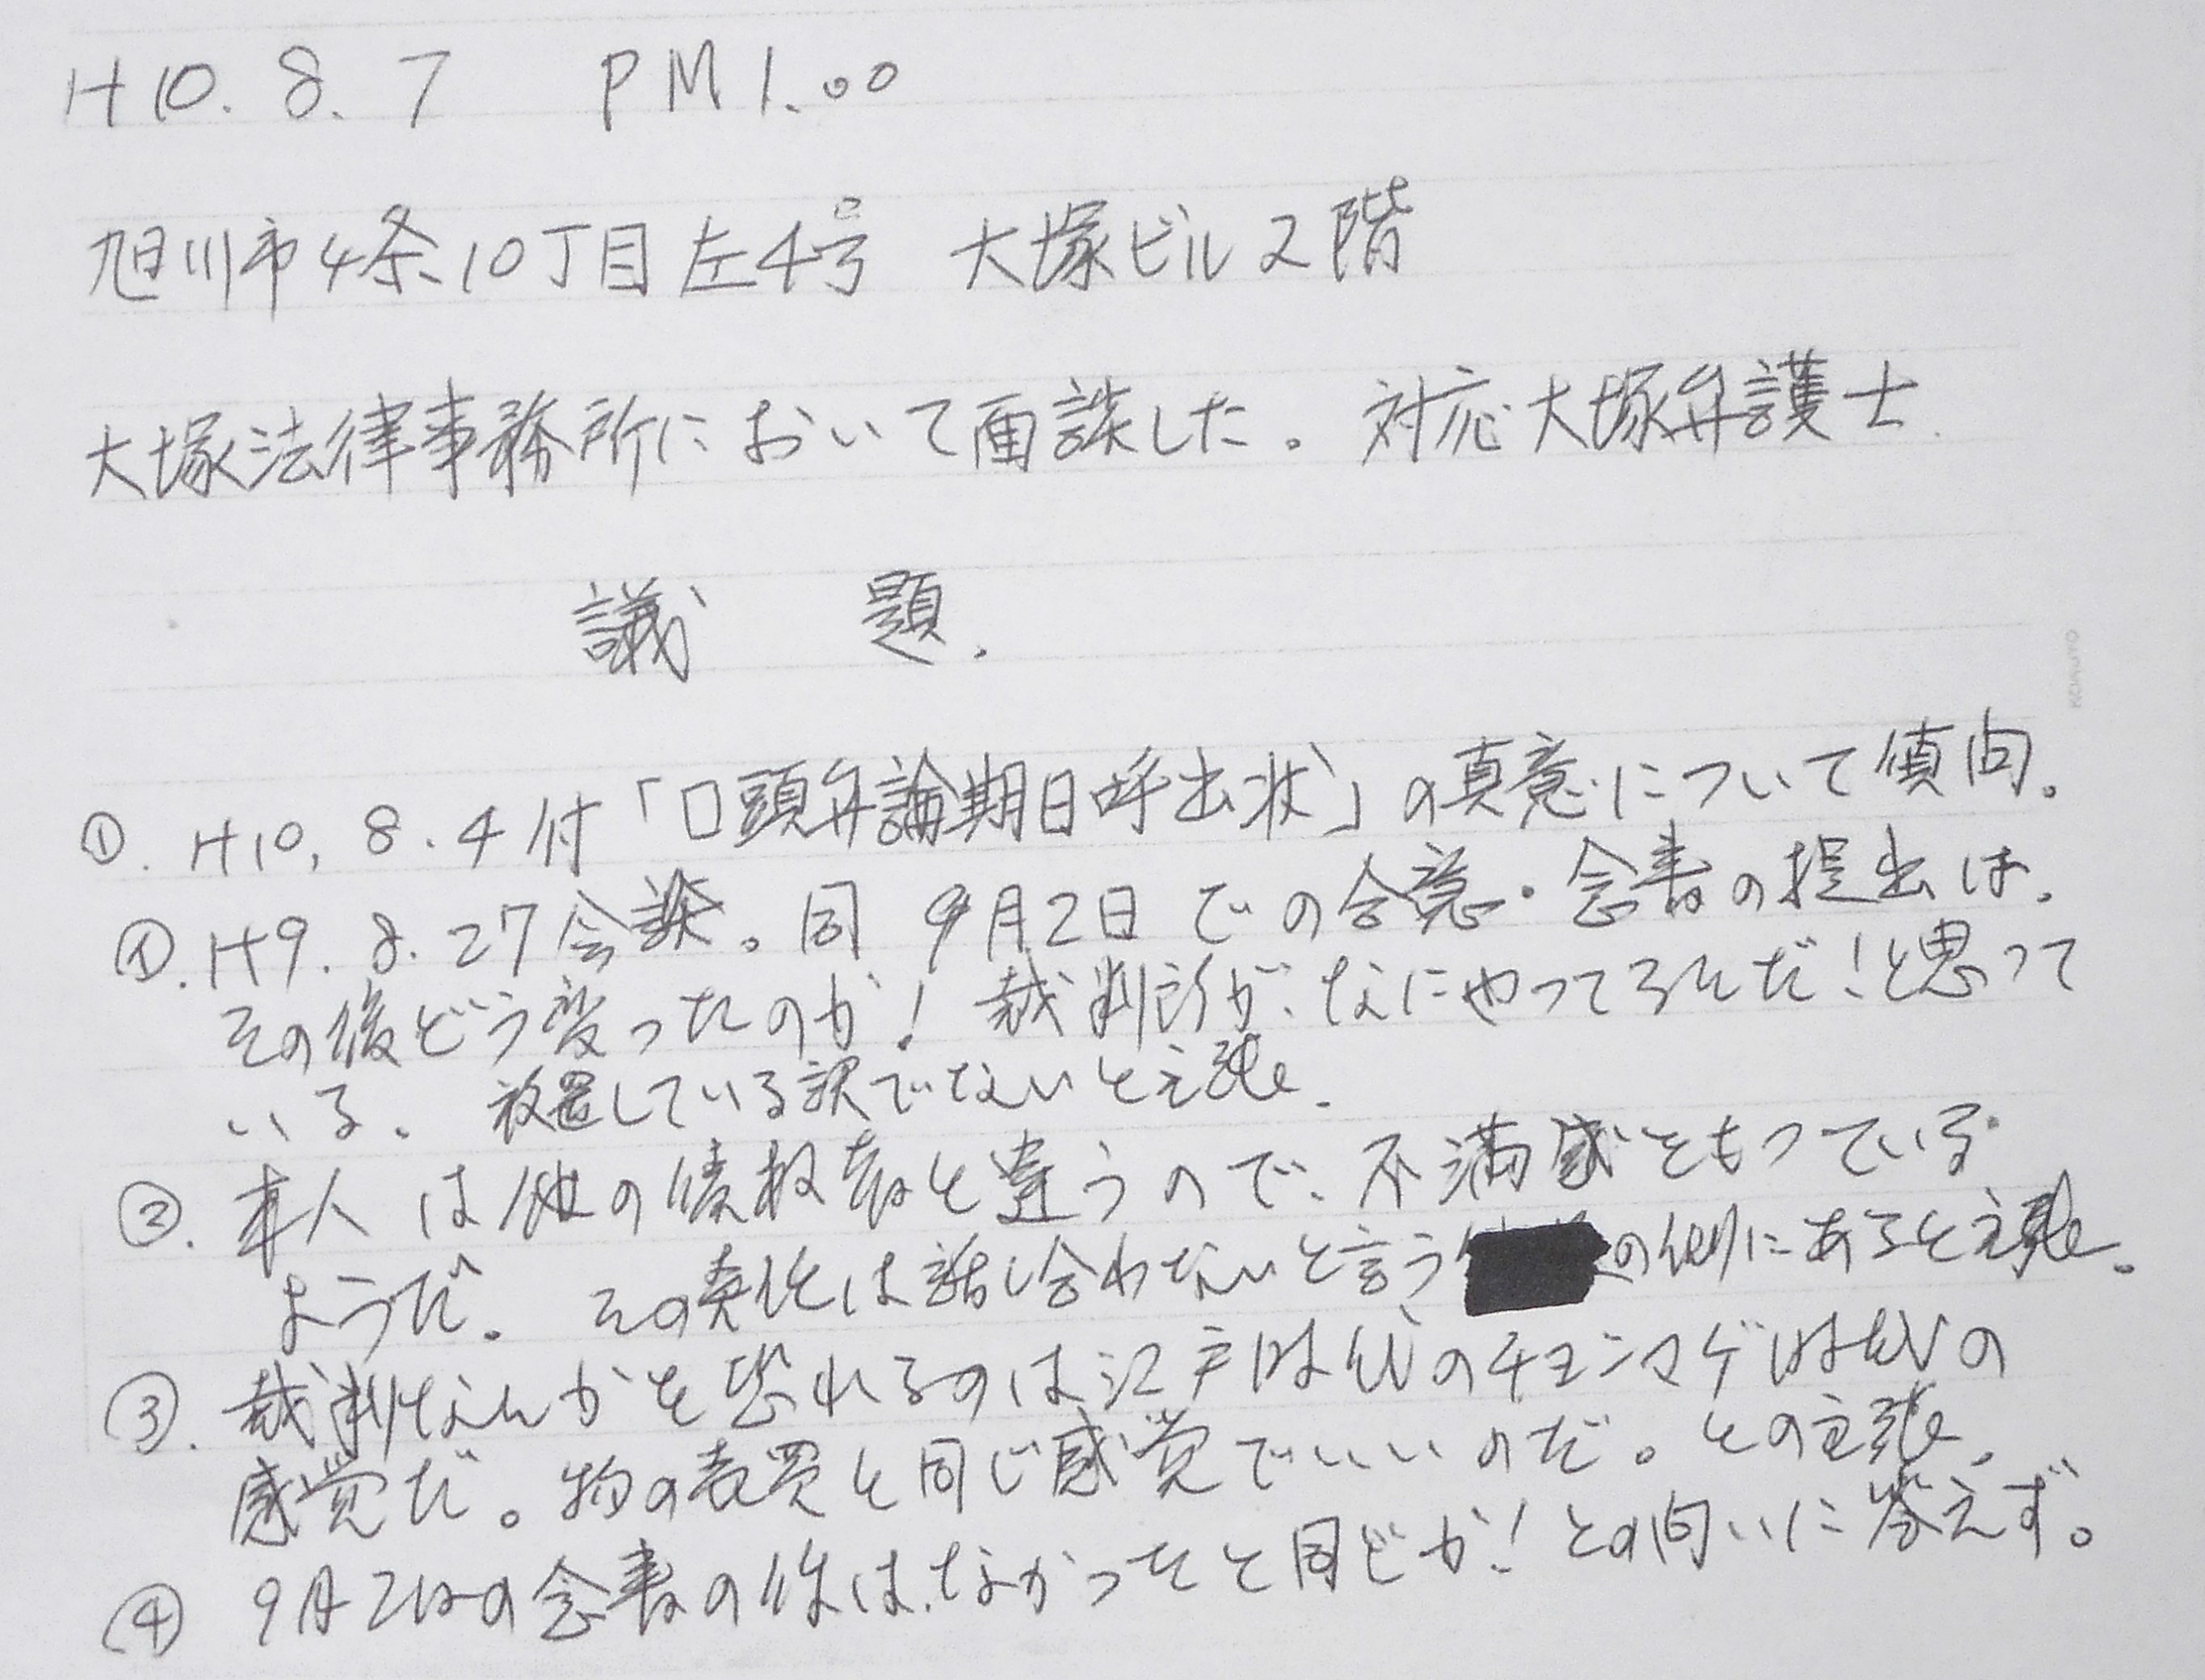 H10. 8. 7 PM 1.00
旭川市4条10丁目左4号 大塚ビル2階
大塚法律事務所において面談した。対応大塚弁護士.
議 題.
①. H10, 8. 4付「口頭弁論期日呼出状」の真意について偵問.
①. H9. 8. 27会談。同 9月2日での合意・念書の提出は.
その後どう変ったのか! 裁判所が、なにやってるんだ!と思って
いる. 放置している訳でないと主張.
②. 本人は他の債権者と違うので、不満感をもっている
ようだ。 その責任は話し合わないと言う の側にあると主張.
③. 裁判なんかを恐れるのは江戸時代のチョンマゲ時代の
感覚だ。物の売買と同じ感覚でいいのだ。との主張.
④ 9月2日の念書の件は、なかったと同じか!との問いに答えず。